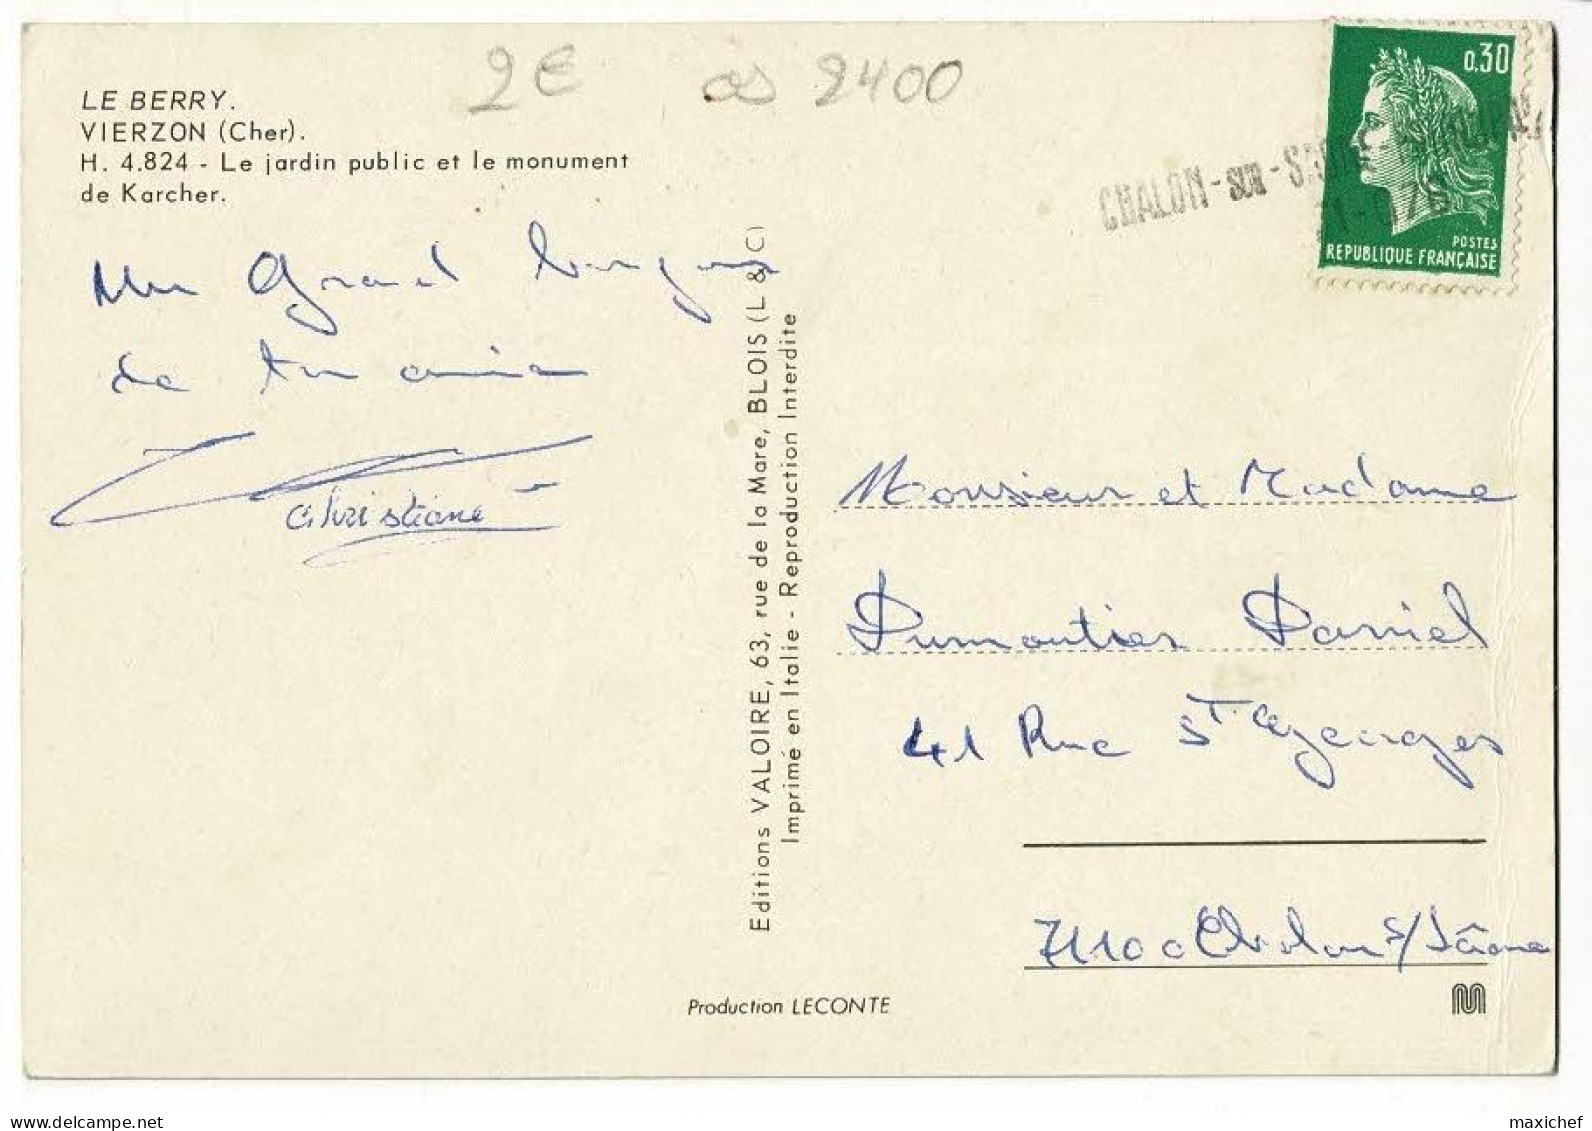 2€ 2400
LE BERRY.
VIERZON (Cher).
H. 4.824 - Le jardin public et le monument
de Karcher.
Un Grand bonjour
de ton amie
Christiane
Editions VALOIRE, 63, rue de la Mare, BLOIS (L & C)
Imprimé en Italie - Reproduction Interdite
0,30
POSTES
REPUBLIQUE FRANÇAISE
CHALON-SUR-
Monsieur et Madame
Dumoutier Daniel
41 Rue St Georges
71100 Chalon s/Saône
Production LECONTE
maxichef